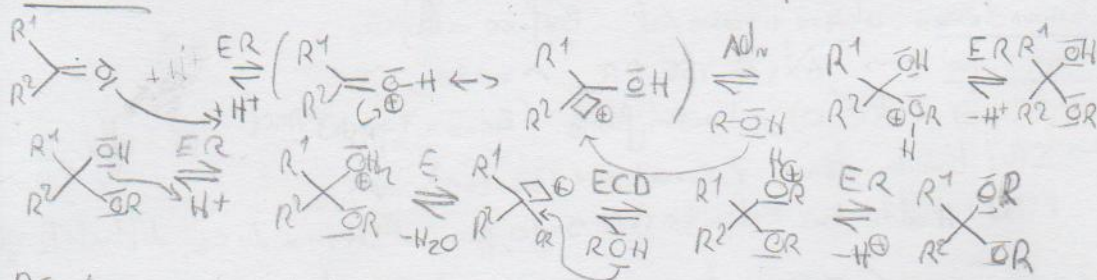 R¹ R² =O +H⁺ ER ⇌ +H⁺ ( R¹ R² O-H ⊕ ↔ R¹ R² OH ⊕ ) Ad_N ⇌ R-OH R¹ R² OH ⊕OR H ER ⇌ -H⁺ R¹ R² OH OR
R¹ R² OH OR ER ⇌ H⁺ R¹ R² OH₂ ⊕ OR E ⇌ -H₂O R¹ R² ⊕ OR ECD ⇌ ROH R¹ R² H⊕ OR OR ER ⇌ -H⊕ R¹ R² OR OR